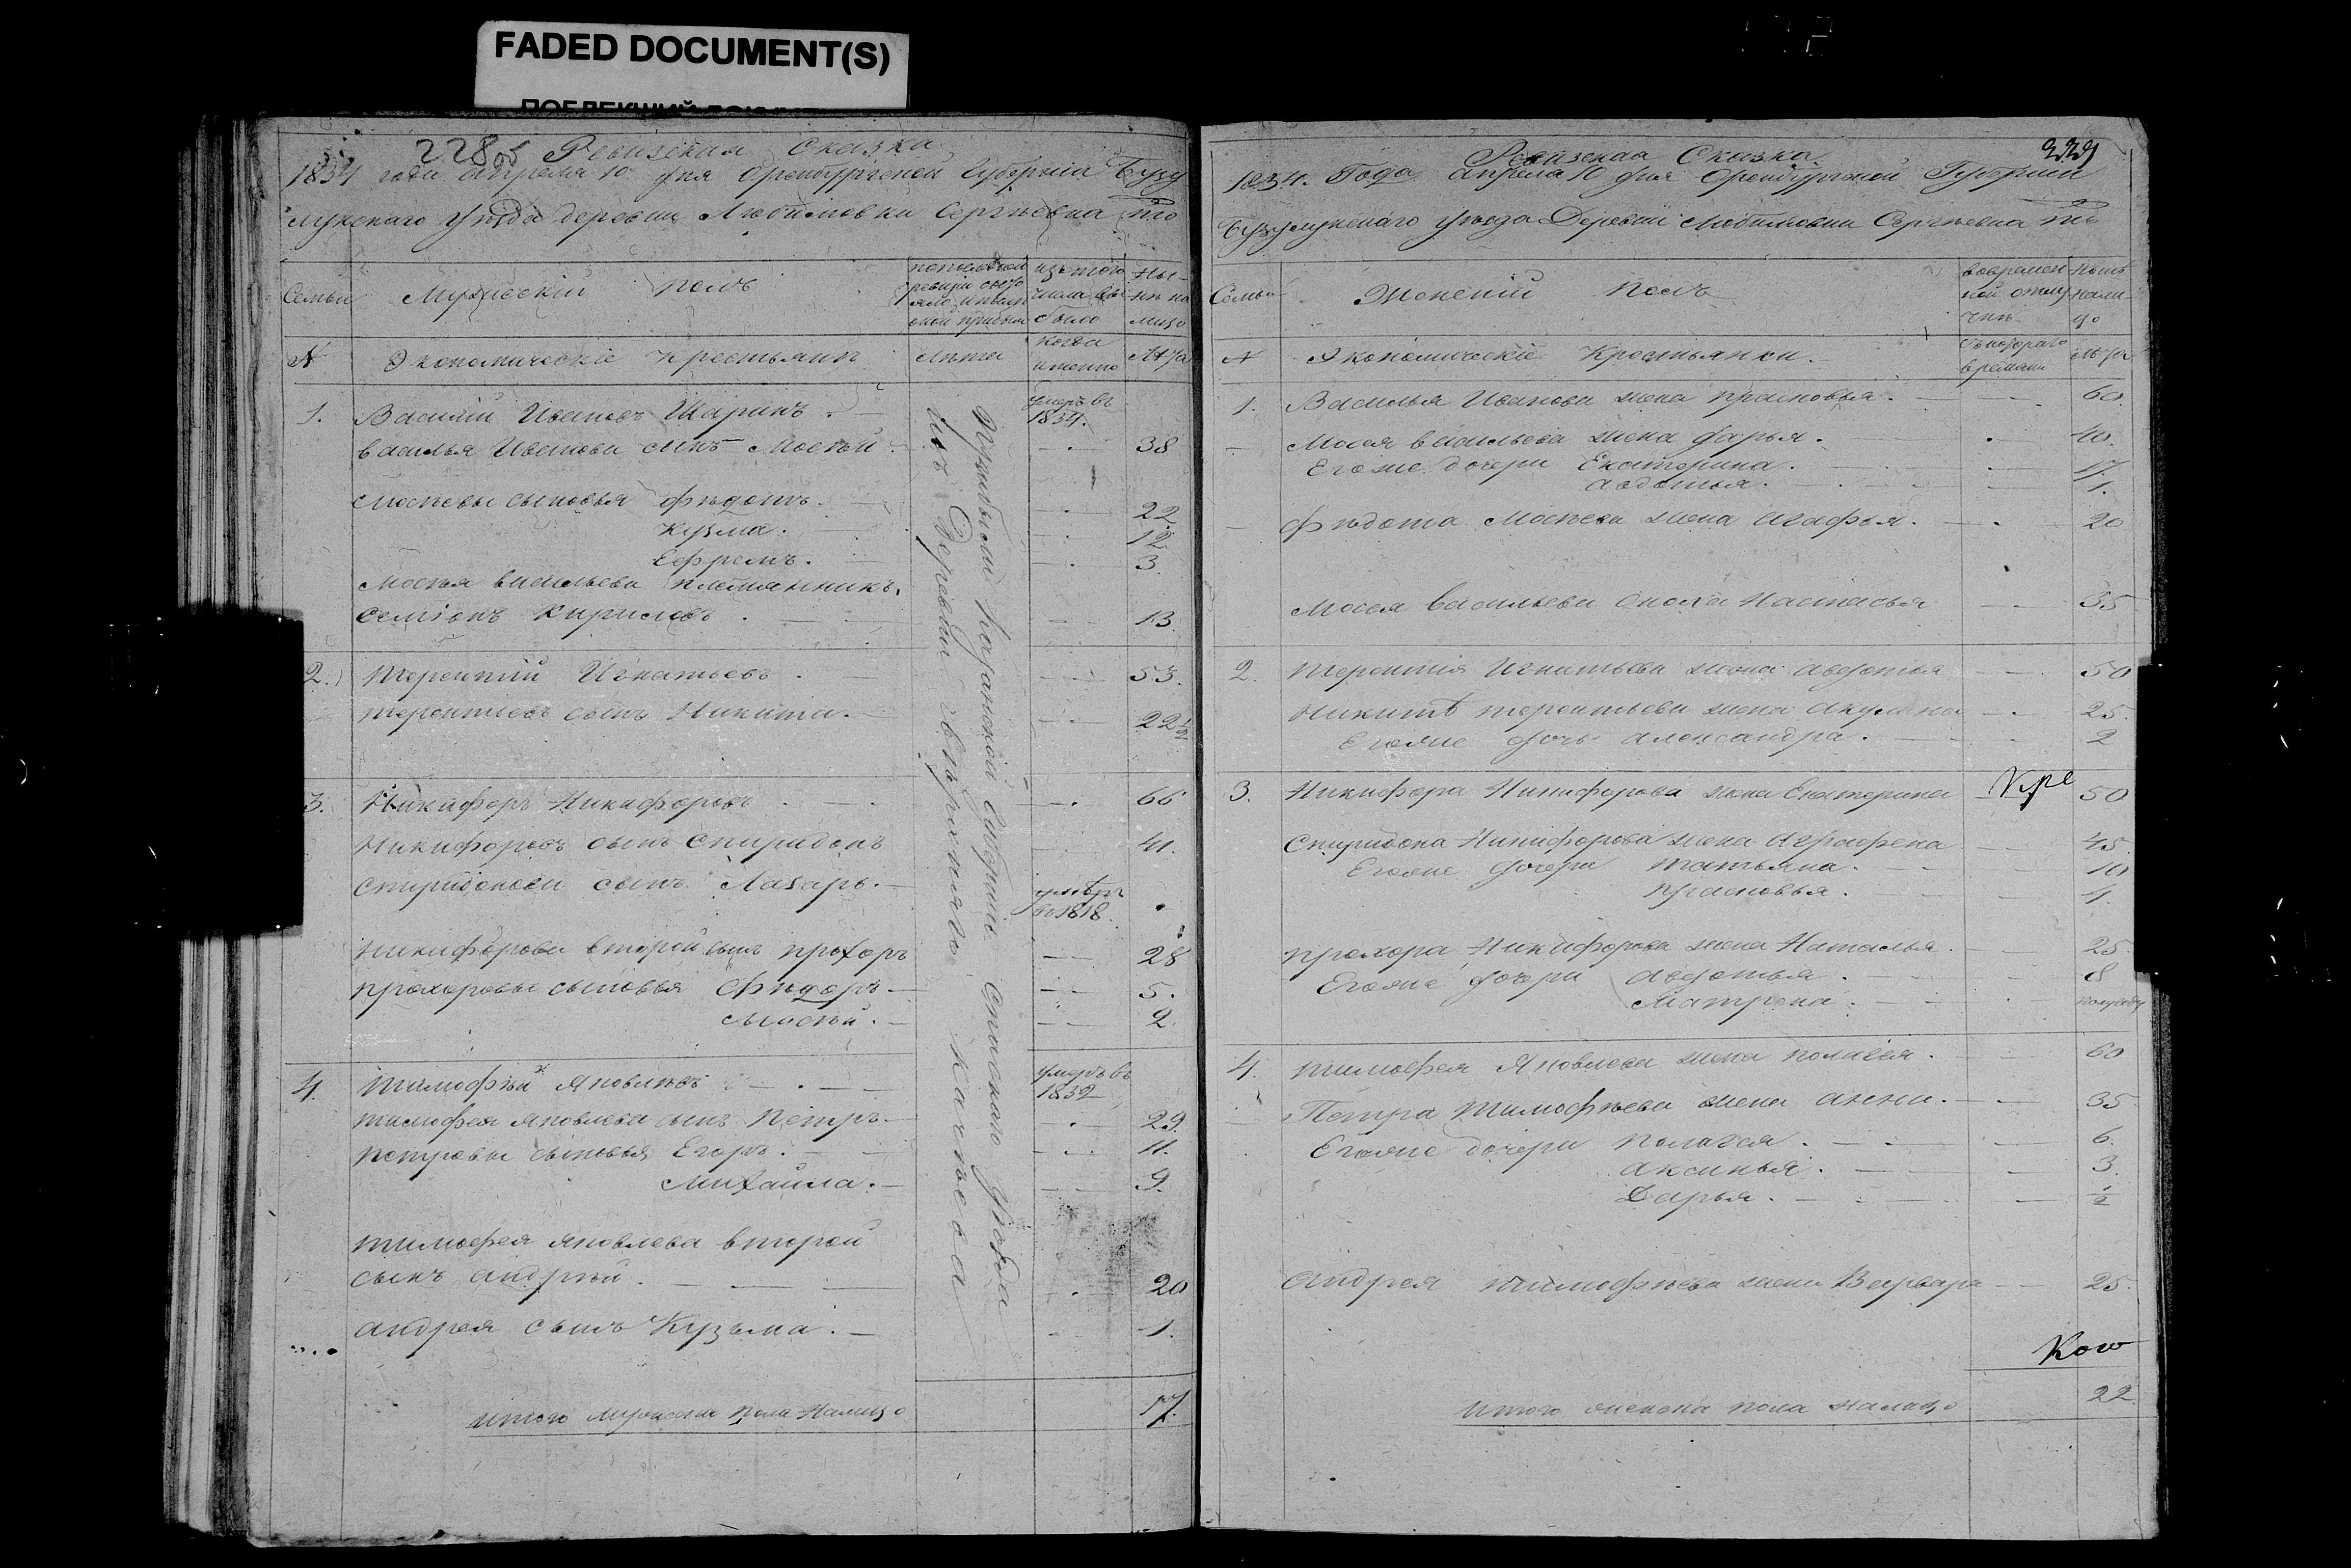 FADED DOCUMENT(S)
228об Ревизская Сказка
1834 года апреля 10 дня Оренбургской Губернии Бузу
лукскаго Уезда деревни Любимовки Сергъевка то
Семьи Мужеский полъ
изъ того числа вы было
ны- нъ на лицо
№ Экономическіе крестьянъ лъта когда именно лъта
1. Василий Ивановъ Шаринъ. умеръ въ 1834.
василья Иванова сынъ Мосъй 38
Мосъевы сыновья Фъдотъ. 22
Кузма. 12
Ефремъ. 3
Мосъя васильева племянникъ.
Семіонъ Кириловъ 13
2. терентий Игнатьевъ 53.
терентьевъ сынъ Никита. 22 1/2
3. Никифоръ Никифоровъ 66
Никифоровъ сынъ Спиридонъ 41.
Спиридонова сынъ Лазарь. умеръ въ 1818.
никифорова второй сынъ прохоръ 28
прохоровы сыновья Фъдоръ 5.
Мосъй. 2.
4. тимофъй Яковлевъ умеръ въ 1832
тимофея яковлева сынъ Петръ 29.
петровы сыновья Егоръ. 11.
Михайла. 9.
тимофея яковлева второй
сынъ андръй. 20
андрея сынъ Кузьма. 1.
итого мужеска пола налицо 17.
Прибыли Казанской Губернии Спаскаго уъзда
изъ Деревни
229
Ревизская Сказка.
1834. Года апреля 10 дня Оренбургской Губернии
Бузулукскаго уъзда Деревни Любимовки Сергъевка то
Семьи Женскій полъ
во времен ной отлу чкъ
нынъ нали- цо
№ Экономическіе Крестьянки. съ котораго времени лъта
1. Василья Иванова жена прасковья. 60.
Мосея васильева жена дарья. 40.
Егоже дочери Екатерина. 17.
авдотья. 1.
фъдота Мосъева жена агафья. 20
Мосея васильева сноха Настасья 35
2. терентия Игнатьева жена авдотья 50
Никиты терентьева жена акулина 25.
Егоже дочь александра. 2
3. Никифора Никифорова жена Екатерина 50
Спиридона Никифорова жена аграфена 45.
Егоже дочери татьяна. 10
прасковья. 4.
прохора Никифорова жена Наталья. 25.
Егоже дочери авдотья. 8
Матрена. полугоду
4. тимофея Яковлева жена полагея. 60
Петра тимофъева жена анна. 35
Егоже дочери полагея. 6.
аксинья. 3.
Дарья. 1/2
андрея тимофъева жена Варвара 25.
22
итого женска пола налицо